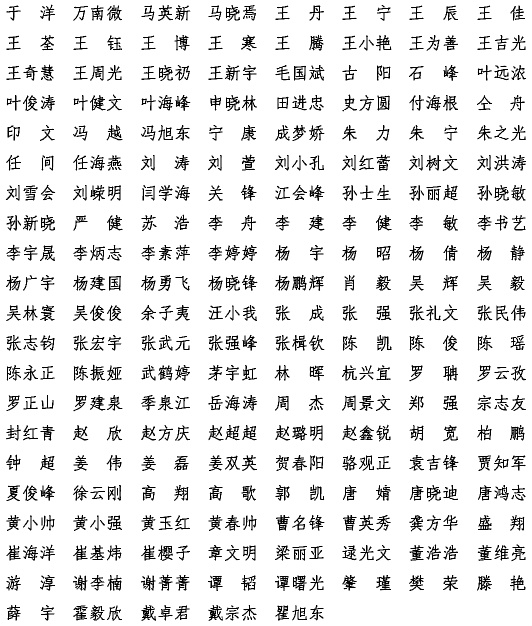 于洋 万南微 马英新 马晓焉 王丹 王宁 王辰 王佳
王荃 王钰 王博 王寒 王腾 王小艳 王为善 王吉光
王奇慧 王周光 王晓礽 王新宇 毛国斌 古阳 石峰 叶远浓
叶俊涛 叶健文 叶海峰 申晓林 田进忠 史方圆 付海根 仝舟
印文 冯越 冯旭东 宁康 成梦娇 朱力 朱宁 朱之光
任间 任海燕 刘涛 刘萱 刘小孔 刘红蕾 刘树文 刘洪涛
刘雪会 刘嵘明 闫学海 关锋 江会峰 孙士生 孙丽超 孙晓敏
孙新晓 严健 苏浩 李舟 李建 李健 李敏 李书艺
李宇晟 李炳志 李素萍 李婷婷 杨宇 杨昭 杨倩 杨静
杨广宇 杨建国 杨勇飞 杨晓锋 杨鹏辉 肖毅 吴辉 吴毅
吴林寰 吴俊俊 余子夷 汪小我 张成 张强 张礼文 张民伟
张志钧 张宏宇 张武元 张强峰 张楫钦 陈凯 陈俊 陈瑶
陈永正 陈振娅 武鹤婷 茅宇虹 林晖 杭兴宜 罗聃 罗云孜
罗正山 罗建泉 季泉江 岳海涛 周杰 周景文 郑强 宗志友
封红青 赵欣 赵方庆 赵超超 赵璐明 赵鑫锐 胡宽 柏鹏
钟超 姜伟 姜磊 姜双英 贺春阳 骆观正 袁吉锋 贾知军
夏俊峰 徐云刚 高翔 高歌 郭凯 唐婧 唐晓迪 唐鸿志
黄小帅 黄小强 黄玉红 黄春帅 曹名锋 曹英秀 龚方华 盛翔
崔海洋 崔基炜 崔樱子 章文明 梁丽亚 逯光文 董浩浩 董维亮
游淳 谢李楠 谢菁菁 谭韬 谭曙光 肇瑾 樊荣 滕艳
薛宇 霍毅欣 戴卓君 戴宗杰 瞿旭东